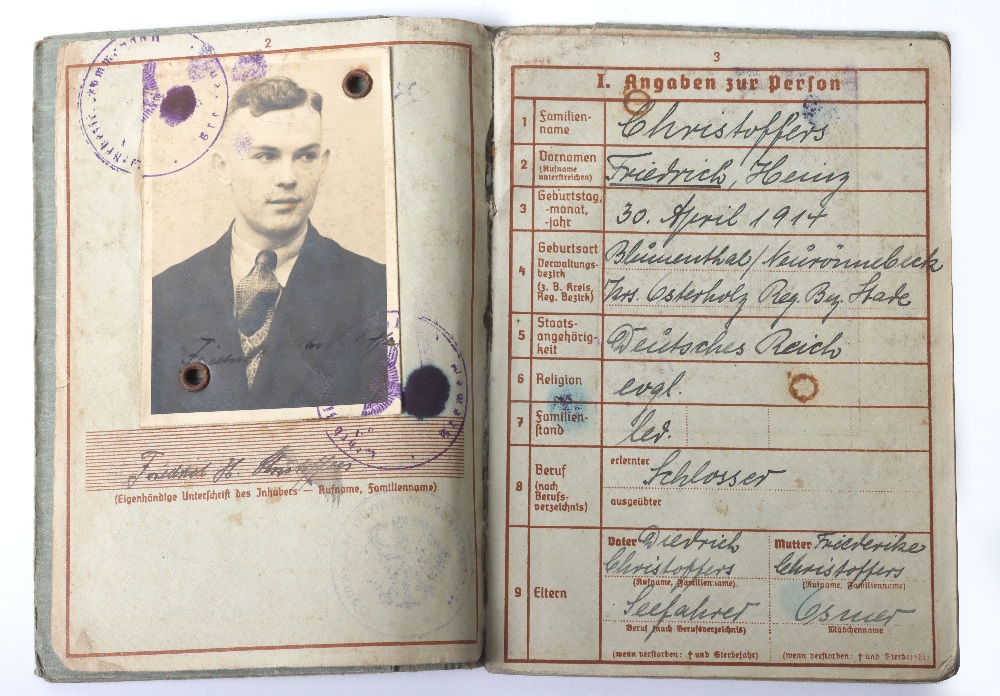 2
Friedrich H Christoffers
(Eigenhändige Unterschrift des Inhabers — Rufname, Familienname)
3
I. Angaben zur Person
1 Familien-
name
Christoffers
2 Vornamen
(Rufname
unterstreichen)
Friedrich, Heinz
3 Geburtstag,
-monat,
-jahr
30. April 1917
4 Geburtsort
Verwaltungs-
bezirk
(z. B. Kreis,
Reg. Bezirk)
Blumenthal/Neurönnebeck
Krs. Osterholz Reg. Bez. Stade
5 Staats-
angehörig-
keit
Deutsches Reich
6 Religion
evgl.
7 Familien-
stand
led.
8 Beruf
(nach
Berufs-
verzeichnis)
erlernter
Schlosser
ausgeübter
9 Eltern
Vater Diedrich
Christoffers
(Rufname, Familienname)
Seefahrer
Beruf (nach Berufsverzeichnis)
(wenn verstorben: † und Sterbejahr)
Mutter Friederike
Christoffers
(Rufname, Familienname)
Osmer
Mädchenname
(wenn verstorben: † und Sterbejahr)